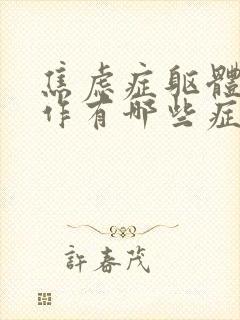 焦虑症躯體
作有哪些症
許春茂